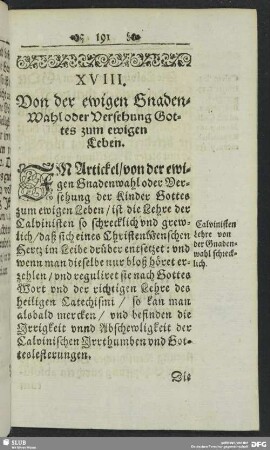 191
XVIII.
Von der ewigen Gnaden-
Wahl oder Versehung Got-
tes zum ewigen
Leben.
IN Artickel/von der ewi-
gen Gnadenwahl oder Ver-
sehung der Kinder Gottes
zum ewigen Leben/ ist die Lehre der
Calvinisten so schrecklich vnd grew-
lich/ daß sich eines ChristenMenschen
Hertz im Leibe drüber entsetzet: vnd
wenn man dieselbe nur bloß höret er-
zehlen/ vnd reguliret sie nach Gottes
Wort vnd der richtigen Lehre des
heiligen Catechismi/ so kan man
alsbald mercken/ vnd befinden die
Irrigkeit vnnd Abschewligkeit der
Calvinischen Irrthumben vnd Got-
teslesterungen.
Calvinisten
Lehre von
der Gnaden-
wahl schreck-
lich.
Die
SLUB
DFG